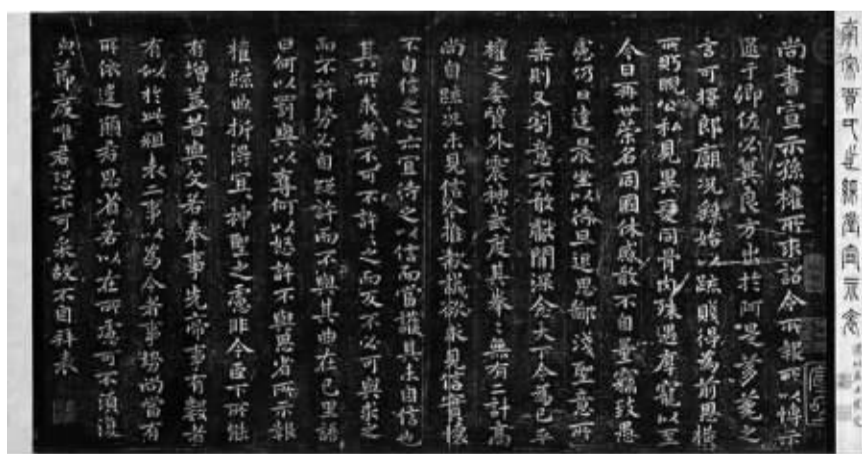 尚書宣示孫權所求詔令所報所以博示
逮于卿佐必冀良方出於阿是芻蕘之
言可擇郎廟況繇始以疏賤得為前恩橫
所盱睨公私見異愛同骨肉殊遇厚寵以至
今日再世榮名同國休慼敢不自量竊致愚
慮仍日達晨坐以待旦退思鄙淺聖意所
棄則又割意不敢獻聞深念天下今為已平
權之委質外震神武度其拳〻無有二計高
尚自疏況未見信今推款誠欲求見信實懷
不自信之心亦宜待之以信而當護其未自信也
其所求者不可不許〻之而反不必可與求之
而不許勢必自絕許而不與其曲在己里語
曰何以罰與以奪何以怒許不與思省所示報
權疏曲折得宜神聖之慮非今臣下所能
有增益昔與文若奉事先帝事有數者
有似於此粗表二事以為今者事勢尚當有
所依違願君思省若以在所慮可不須復
節度唯君恐不可采故不自拜表